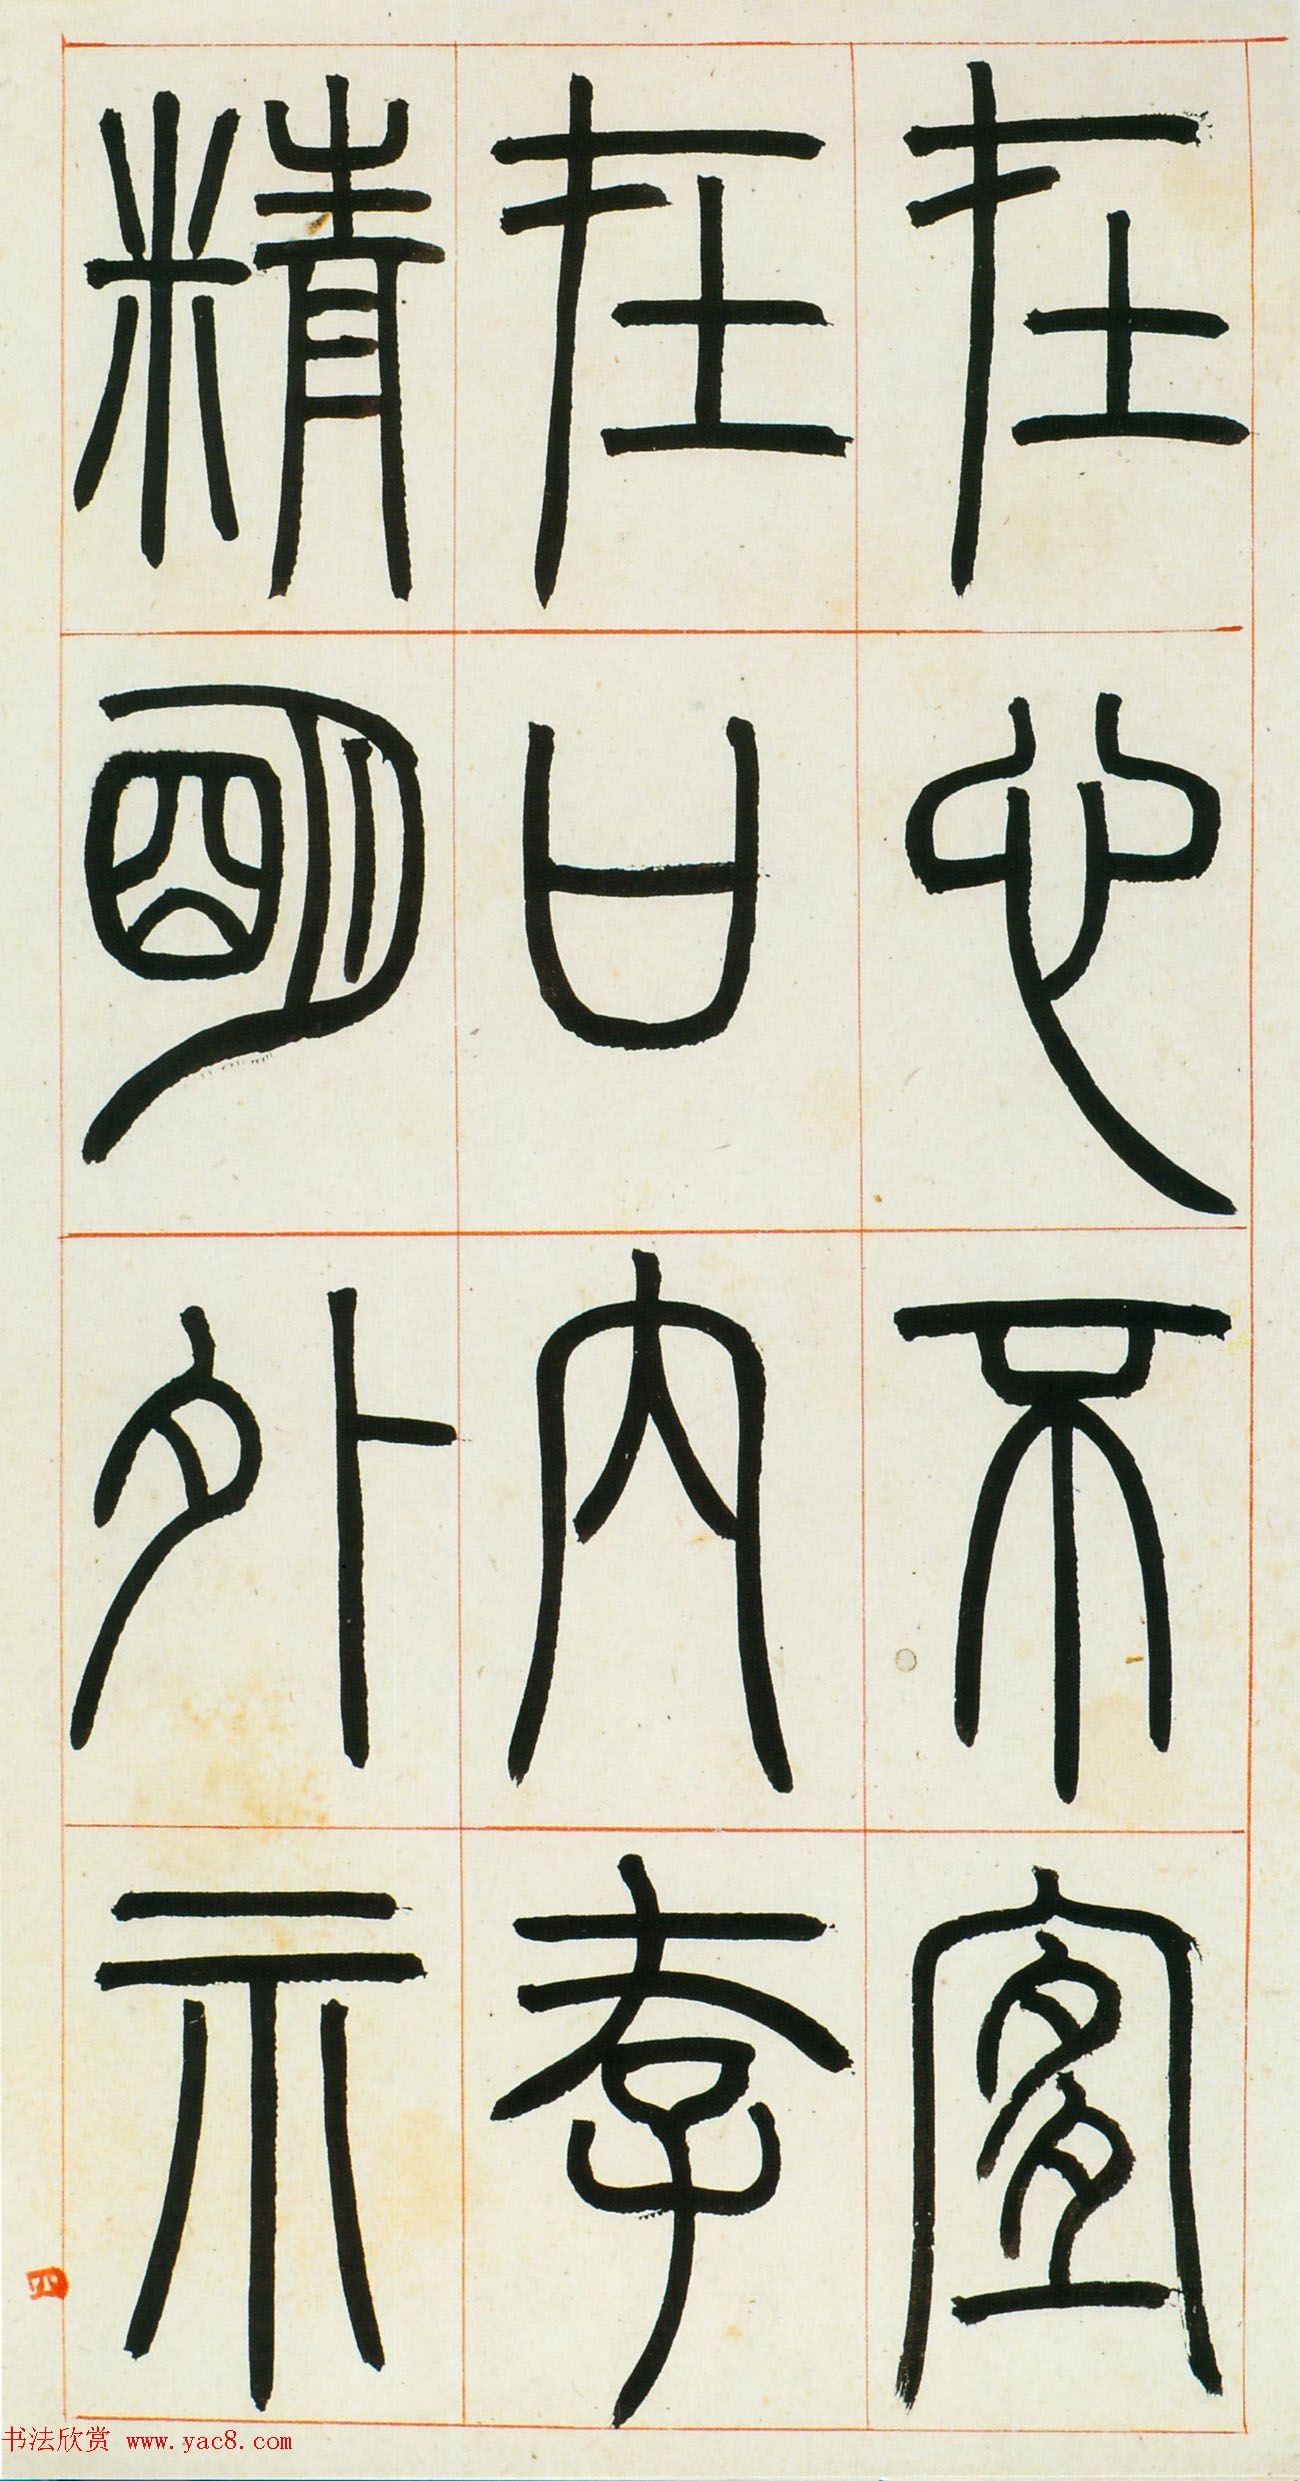 在心不宜
在口内孝
精明外示
书法欣赏 www.yac8.com